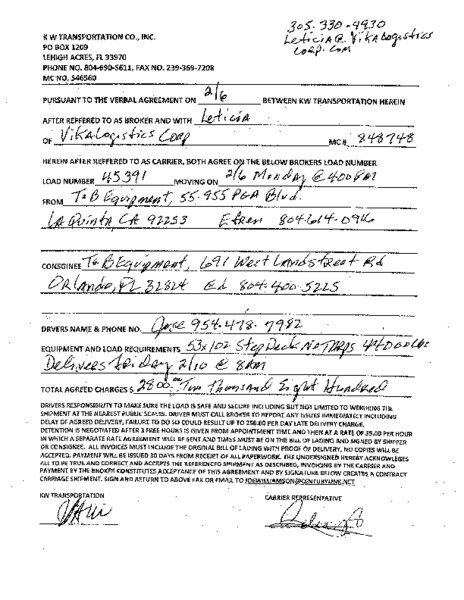 305-330-4930
LeticiA@VikALogistics
Corp.com
K W TRANSPORTATION CO., INC.
PO BOX 1209
LEHIGH ACRES, FL 33970
PHONE NO. 804-690-5611, FAX NO. 239-369-7208
MC NO. 546560
PURSUANT TO THE VERBAL AGREEMENT ON 2/6 BETWEEN KW TRANSPORTATION HEREIN
AFTER REFFERED TO AS BROKER AND WITH LeticiA
OF VikALogistics Corp MC# 848748
HEREIN AFTER REFFERED TO AS CARRIER, BOTH AGREE ON THE BELOW BROKERS LOAD NUMBER
LOAD NUMBER 45391 MOVING ON 2/6 Monday @ 400PM
FROM T&B Equipment, 55-955 PGA Blvd.
LA Quinta CA 92253 Efren 804-614-0916
CONSIGNEE T&B Equipment, 691 West Landstreet Rd
Orlando, FL 32824 Ed 804-400-5225
DRVERS NAME & PHONE NO. Jose 954-478-7982
EQUIPMENT AND LOAD REQUIREMENTS 53x102 Step Deck No TARPS 44000 Lbs
Delivers Friday 2/10 @ 8AM
TOTAL AGREED CHARGES $ 2800.00 Two Thousand Eight Hundred
DRIVERS RESPONSIBILITY TO MAKE SURE THE LOAD IS SAFE AND SECURE INCLUDING BUT NOT LIMITED TO WEIGHING THE
SHIPMENT AT THE NEAREST PUBLIC SCALES. DRIVER MUST CALL BROKER TO REPORT ANY ISSUES IMMEDIATELY INCLUDING
DELAY OF AGREED DELIVERY, FAILURE TO DO SO COULD RESULT UP TO 250.00 PER DAY LATE DELIVERY CHARGE.
DETENTION IS NEGOTIATED AFTER 3 FREE HOURS IS GIVEN FROM APPOINTMENT TIME AND THEN AT A RATE OF 35.00 PER HOUR
IN WHICH A SEPARATE RATE AGREEMENT WILL BE SENT AND TIMES MUST BE ON THE BILL OF LADING AND SIGNED BY SHIPPER
OR CONSIGNEE. ALL INVOICES MUST INCLUDE THE ORIGINAL BILL OF LADING WITH PROOF OF DELIVERY, NO COPIES WILL BE
ACCEPTED. PAYMENT WILL BE ISSUED 30 DAYS FROM RECEIPT OF ALL PAPERWORK. THE UNDERSIGNED HEREBY ACKNOWLEGES
ALL TO BE TRUE AND CORRECT AND ACCEPTS THE REFERENCED SHIPMENT AS DESCRIBED, INVOICING BY THE CARRIER AND
PAYMENT BY THE BROKER CONSTITUTES ACCEPTANCE OF THIS AGREEMENT AND BY SIGNATURE BELOW CREATES A CONTRACT
CARRIAGE SHIPMENT. SIGN AND RETURN TO ABOVE FAX OR EMAIL TO JOEWILLIAMSON@CENTURYLINK.NET
KW TRANSPORTATION CARRIER REPRESENTATIVE